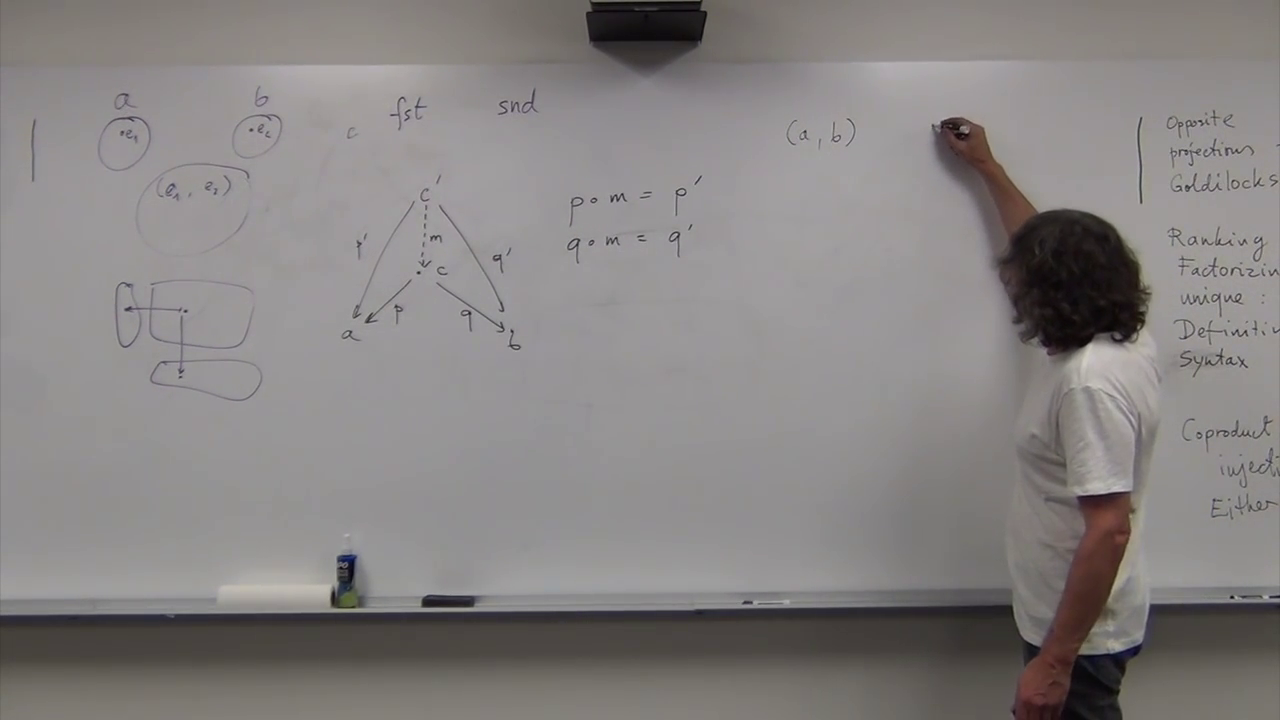 a b
•e₁ •e₂
(e₁, e₂)
c fst snd
c'
p' m q'
c
p q
a b
p ∘ m = p'
q ∘ m = q'
(a, b)
Opposite
projections
Goldilocks
Ranking
Factorizin
unique :
Definitio
Syntax
Coproduct
injecti
Either